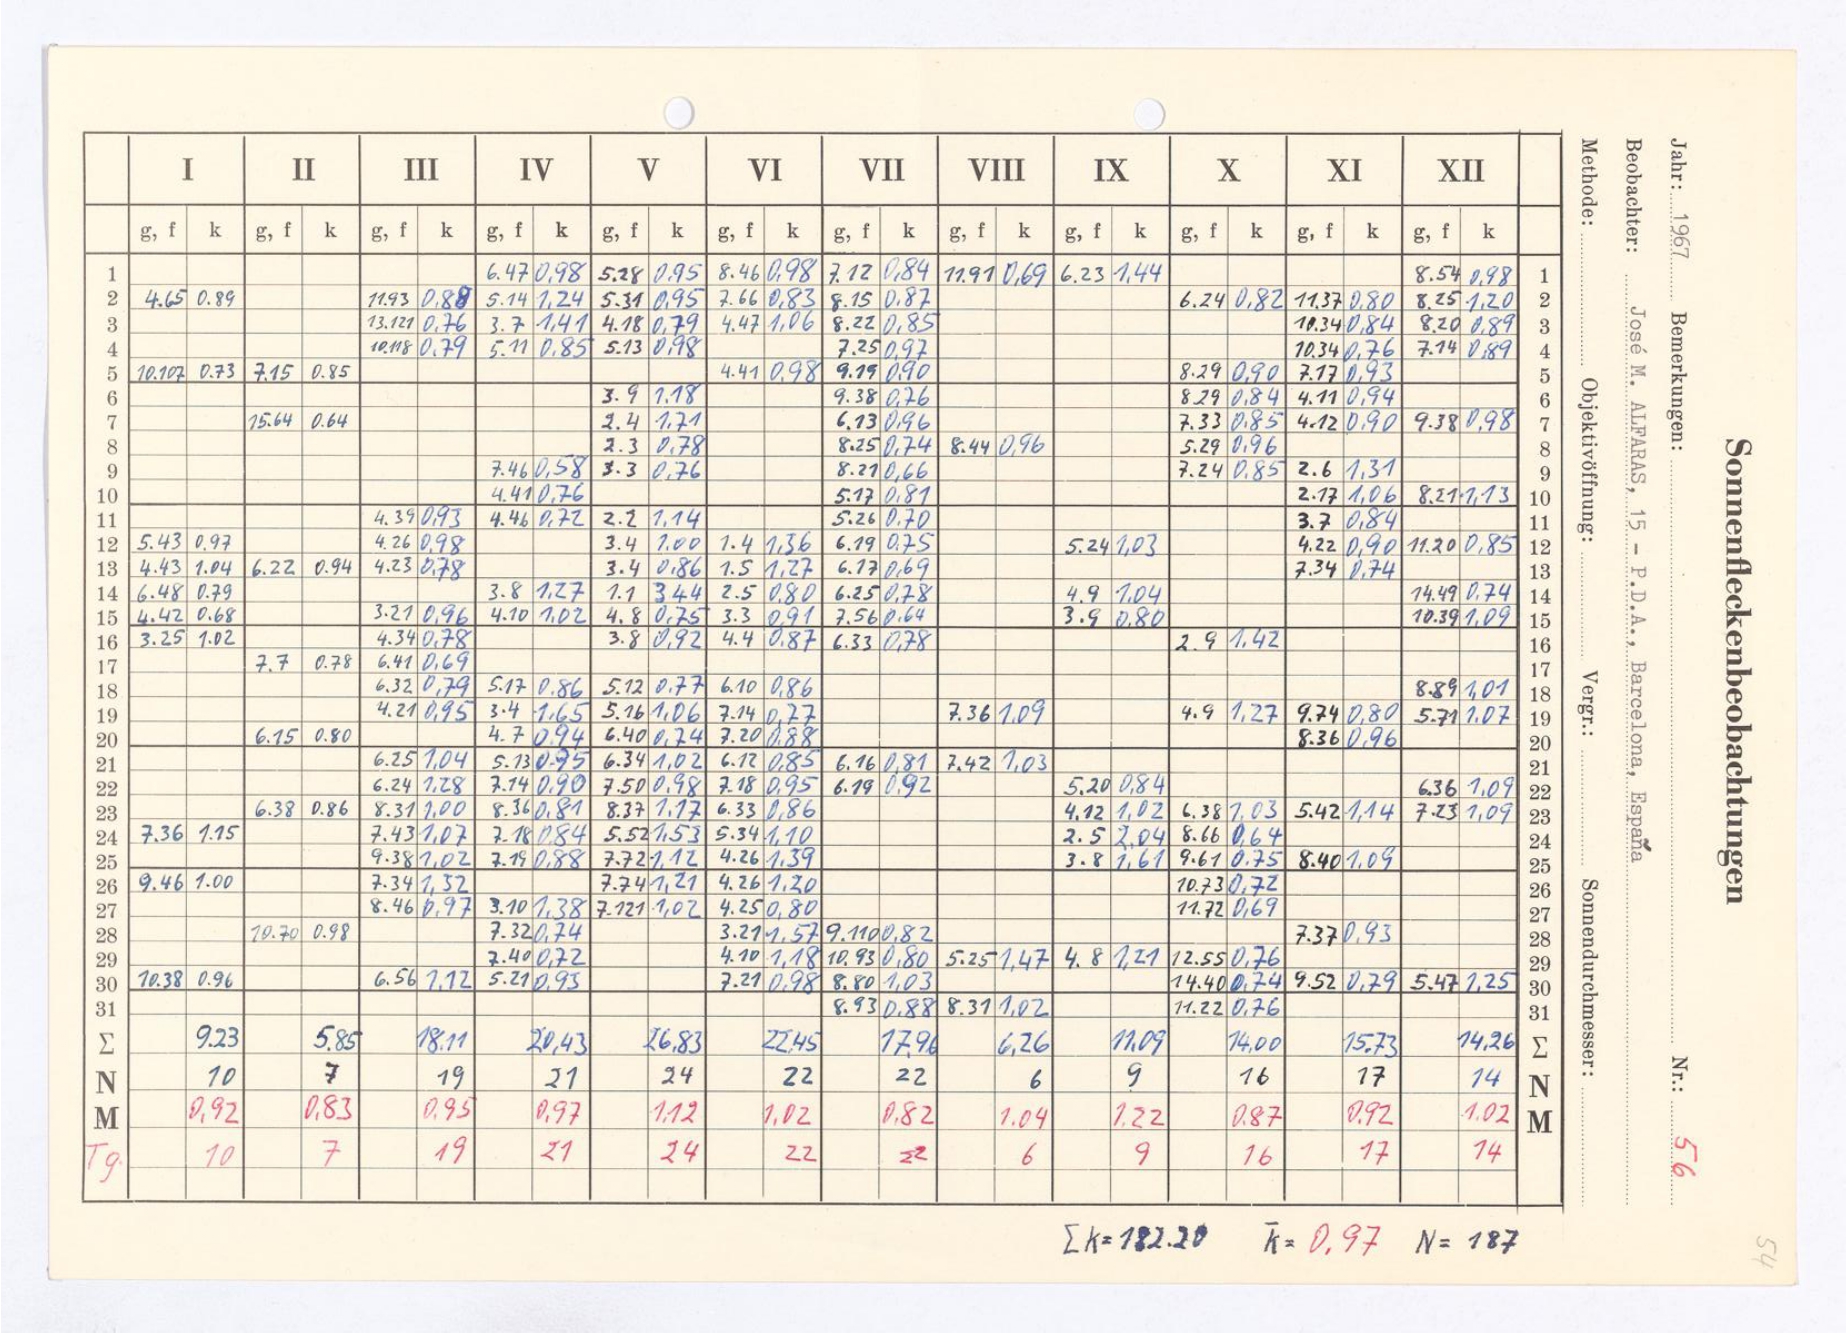 Sonnenfleckenbeobachtungen
Jahr: 1967 Bemerkungen: Nr.: 56
Beobachter: José M. ALFARAS, 15 - P.D.A., Barcelona, España
Methode: Objektivöffnung: Vergr.: Sonnendurchmesser:
I II III IV V VI VII VIII IX X XI XII
g, f k g, f k g, f k g, f k g, f k g, f k g, f k g, f k g, f k g, f k g, f k g, f k
1 6.47 0,98 5.28 0,95 8.46 0,98 7.12 0,84 11.91 0,69 6.23 1,44 8.54 0,98 1
2 4.65 0.89 11.93 0,88 5.14 1,24 5.31 0,95 7.66 0,83 8.15 0,87 6.24 0,82 11.37 0,80 8.25 1,20 2
3 13.121 0,76 3.7 1,41 4.18 0,79 4.47 1,06 8.22 0,85 10.34 0,84 8.20 0,89 3
4 10.118 0,79 5.11 0,85 5.13 0,98 7.25 0,97 10.34 0,76 7.14 0,89 4
5 10.107 0.73 7.15 0.85 4.41 0,98 9.19 0,90 8.29 0,90 7.17 0,93 5
6 3.9 1,18 9.38 0,76 8.29 0,84 4.11 0,94 6
7 15.64 0.64 2.4 1,71 6.13 0,96 7.33 0,85 4.12 0,90 9.38 0,98 7
8 2.3 0,78 8.25 0,74 8.44 0,96 5.29 0,96 8
9 7.46 0,58 3.3 0,76 8.21 0,66 7.24 0,85 2.6 1,31 9
10 4.41 0,76 5.17 0,81 2.17 1,06 8.21 1,13 10
11 4.39 0,93 4.46 0,72 2.2 1,14 5.26 0,70 3.7 0,84 11
12 5.43 0.97 4.26 0,98 3.4 1.00 1.4 1,36 6.19 0.75 5.24 1,03 4.22 0,90 11.20 0,85 12
13 4.43 1.04 6.22 0.94 4.23 0,78 3.4 0,86 1.5 1,27 6.17 0,69 7.34 0,74 13
14 6.48 0.79 3.8 1,27 1.1 3.44 2.5 0,80 6.25 0,78 4.9 1,04 14.49 0,74 14
15 4.42 0.68 3.21 0,96 4.10 1,02 4.8 0,75 3.3 0,91 7.56 0,64 3.9 0,80 10.39 1,09 15
16 3.25 1.02 4.34 0,78 3.8 0,92 4.4 0,87 6.33 0,78 2.9 1,42 16
17 7.7 0.78 6.41 0,69 17
18 6.32 0,79 5.17 0,86 5.12 0,77 6.10 0,86 8.89 1,01 18
19 4.21 0,95 3.4 1,65 5.16 1,06 7.14 0,77 7.36 1,09 4.9 1,27 9.74 0,80 5.71 1,07 19
20 6.15 0.80 4.7 0,94 6.40 0,74 7.20 0,88 8.36 0,96 20
21 6.25 1,04 5.13 0.75 6.34 1,02 6.12 0,85 6.16 0,81 7.42 1,03 21
22 6.24 1,28 7.14 0,90 7.50 0,98 7.18 0,95 6.19 0,92 5.20 0,84 6.36 1,09 22
23 6.38 0.86 8.31 1,00 8.36 0,81 8.37 1,17 6.33 0,86 4.12 1,02 6.38 1,03 5.42 1,14 7.23 1,09 23
24 7.36 1.15 7.43 1,07 7.18 0,84 5.52 1,53 5.34 1,10 2.5 2,04 8.66 0,64 24
25 9.38 1,02 7.19 0,88 7.72 1,12 4.26 1,39 3.8 1,61 9.61 0.75 8.40 1,09 25
26 9.46 1.00 7.34 1,32 7.74 1,21 4.26 1,20 10.73 0,72 26
27 8.46 0,97 3.10 1,38 7.121 1,02 4.25 0,80 11.72 0,69 27
28 10.70 0.98 7.32 0,74 3.21 1,57 9.110 0,82 7.37 0,93 28
29 7.40 0,72 4.10 1,18 10.93 0,80 5.25 1,47 4.8 1,21 12.55 0,76 29
30 10.38 0.96 6.56 1,12 5.21 0,93 7.21 0,98 8.80 1,03 14.40 0,74 9.52 0,79 5.47 1,25 30
31 8.93 0,88 8.31 1,02 11.22 0,76 31
Σ 9.23 5.85 18.11 20,43 26,83 22,45 17,96 6,26 11,09 14,00 15.73 14,26 Σ
N 10 7 19 21 24 22 22 6 9 16 17 14 N
M 0,92 0,83 0.95 0,97 1.12 1,02 0,82 1.04 1.22 0.87 0.92 1.02 M
Tg. 10 7 19 21 24 22 22 6 9 16 17 14
Σk=182.20 k̄= 0,97 N= 187
54